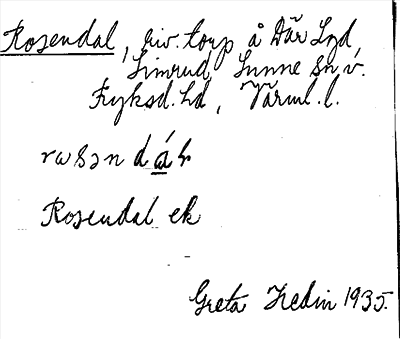 Rosendal, riv. torp å Där Lzd
Limrud, Sunne sn, v.
Fryksd. hd, Värml. l.
rωsən dál
Rosendal ek
Greta Hedin 1935.